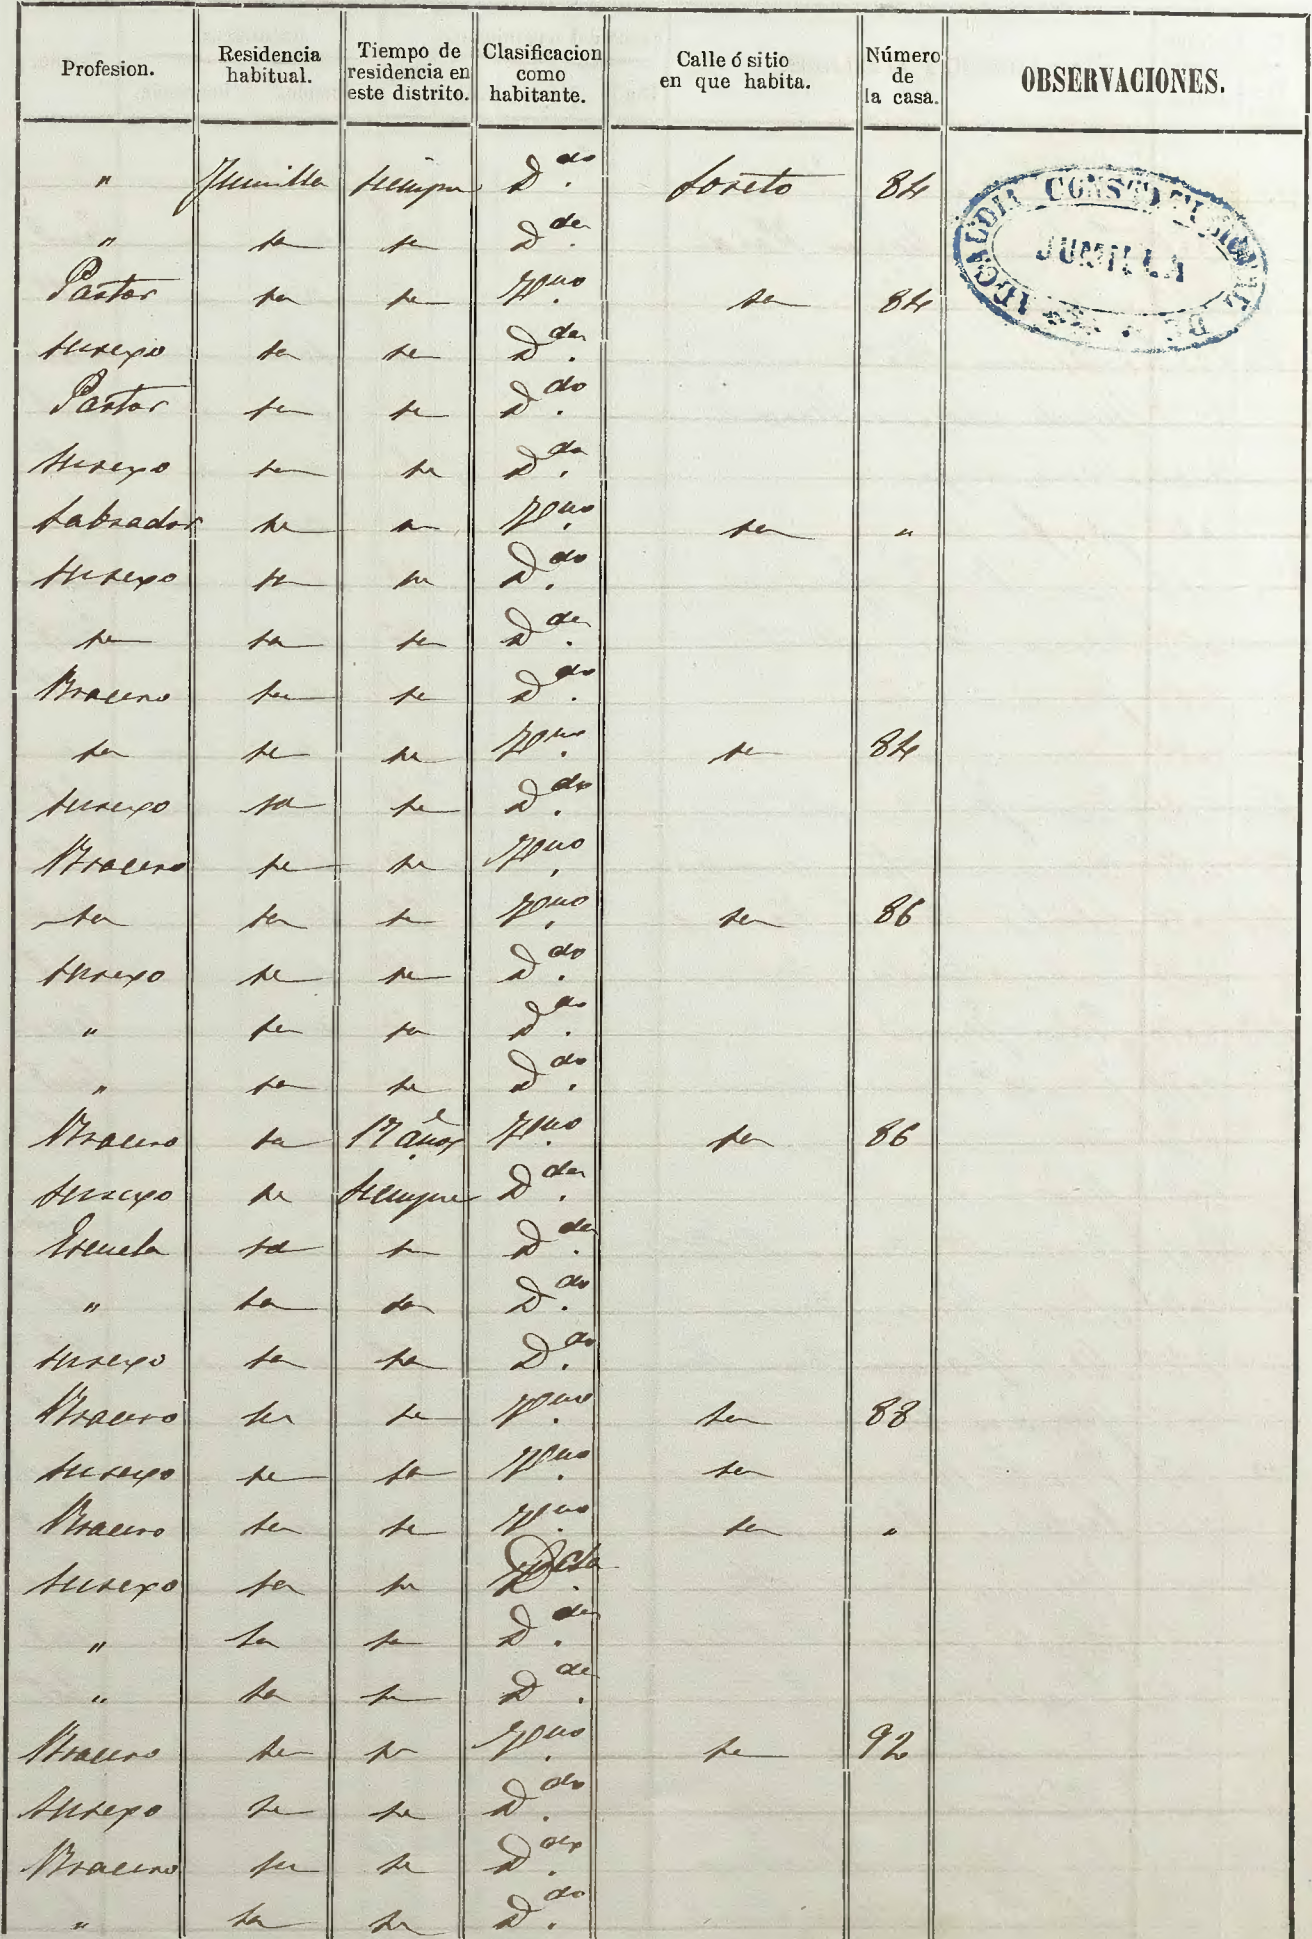 Profesion. Residencia habitual. Tiempo de residencia en este distrito. Clasificacion como habitante. Calle ó sitio en que habita. Número de la casa. OBSERVACIONES.
" Jumilla siempre D.do Loreto 84
ALCALDIA CONSTITUCIONAL DE JUMILLA
" id id D.da
Pastor id id Vno id 84
su sexo id id D.da
Pastor id id D.do
su sexo id id D.da
Labrador id id Vno id "
su sexo id id D.do
id id id D.da
Bracero id id D.do
id id id Vno id 84
su sexo id id D.do
Bracero id id Vno
id id id Vno id 86
su sexo id id D.do
" id id D.do
" id id D.do
Bracero id 17 años Vno id 86
su sexo id siempre D.da
Escuela id id D.da
" id id D.do
su sexo id id D.do
Bracero id id Vno id 88
su sexo id id Vno id
Bracero id id Vno id "
su sexo id id D.da
" id id D.da
" id id D.da
Bracero id id Vno id 92
su sexo id id D.do
Bracero id id D.do
" id id D.do